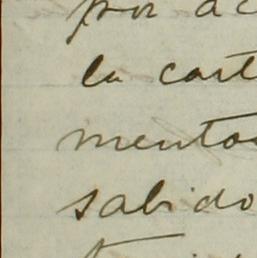 por ac
la cart
mentos
sabido